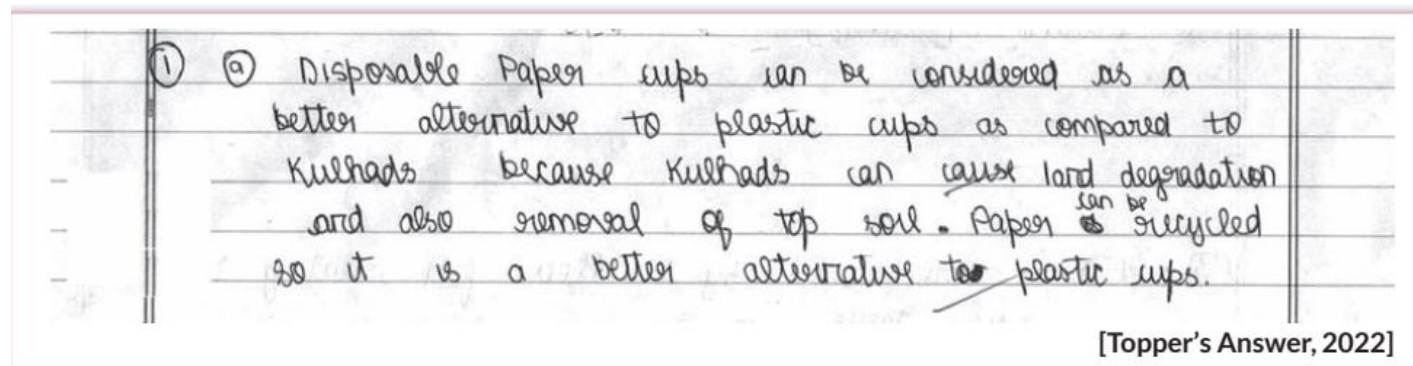 ① ⓐ Disposable Paper cups can be considered as a
better alternative to plastic cups as compared to
Kulhads because Kulhads can cause land degradation
and also removal of top soil. Paper can be recycled
so it is a better alternative to plastic cups.
[Topper's Answer, 2022]